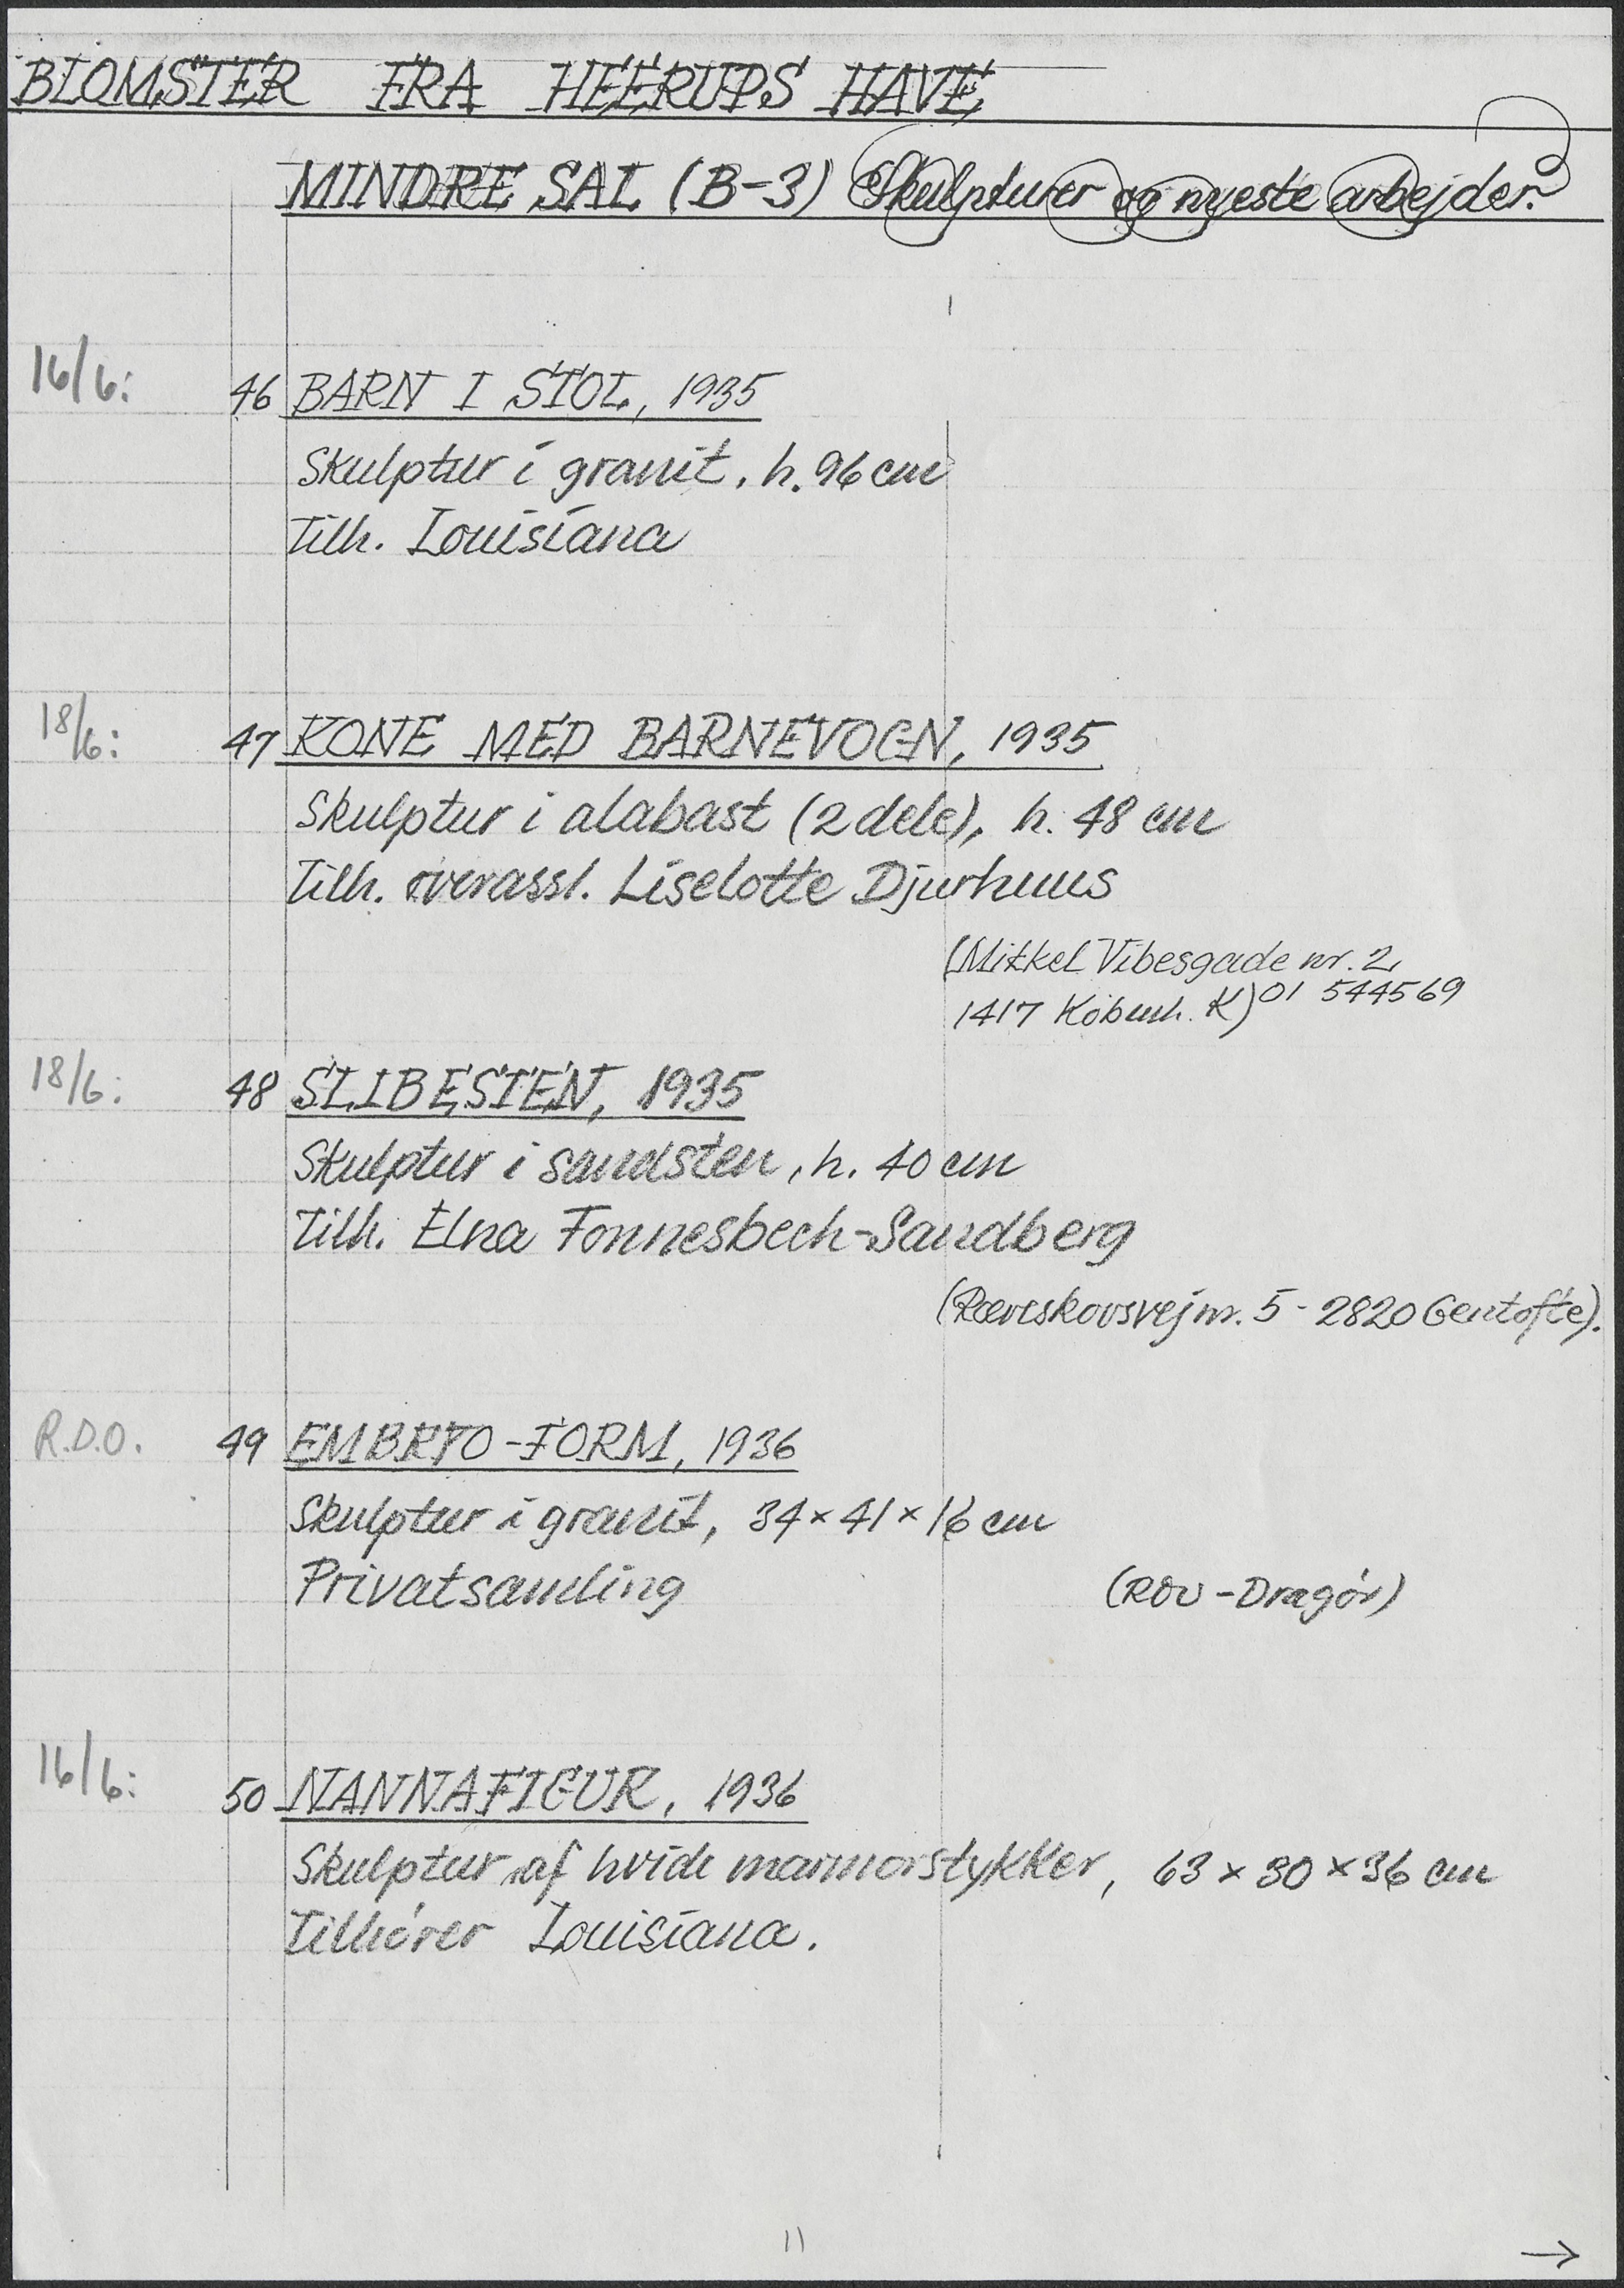 BLOMSTER FRA HEERUPS HAVE
MINDRE SAL (B-3) Skulpturer og nyeste arbejder.
16/6: 46 BARN I STOL, 1935
Skulptur i granit, h. 96 cm
Tilh. Louisiana
18/6: 47 KONE MED BARNEVOGN, 1935
Skulptur i alabast (2 dele), h. 48 cm
Tilh. overassl. Liselotte Djurhuus
(Mikkel Vibesgade nr. 2,
1417 Köbenh. K) 01 544569
18/6: 48 SLIBESTEN, 1935
Skulptur i sandsten, h. 40 cm
Tilh. Elna Fonnesbech-Sandberg
(Ræveskovsvej nr. 5 - 2820 Gentofte).
R.D.O. 49 EMBRYO-FORM, 1936
Skulptur i granit, 34 x 41 x 16 cm
Privatsamling (-Dragör)
16/6: 50 NANNAFIGUR, 1936
Skulptur af hvide marmorstykker, 63 x 30 x 36 cm
Tilhörer Louisiana.
11 →